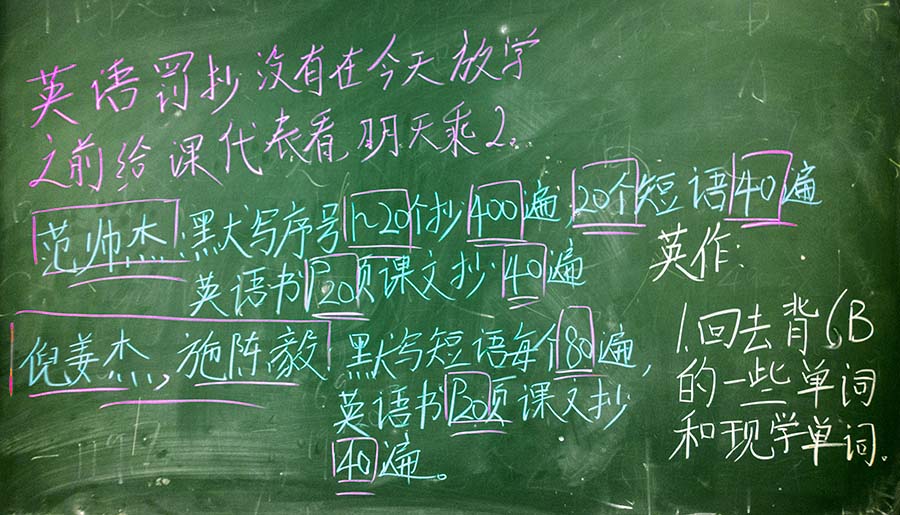 英语罚抄没有在今天放学
之前给课代表看,明天乘2.
范帅杰:默写序号1~20个抄400遍,20个短语40遍
英语书P20页课文抄40遍
倪姜杰,施陈毅 默写短语每个80遍,
英语书P20页课文抄
40遍。
英作:
1.回去背6B
的一些单词
和现学单词.